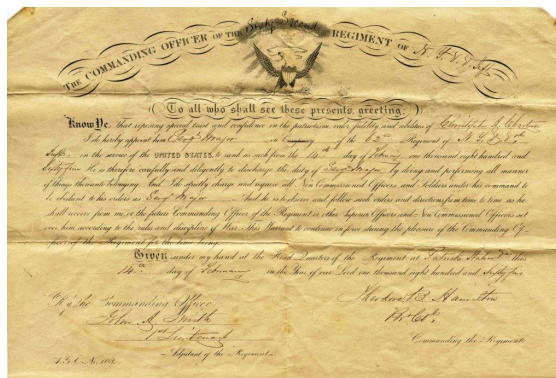 THE COMMANDING OFFICER OF THE Sixty Second REGIMENT OF N. Y. V. V. Inf
To all who shall see these presents, greeting:
Know Ye, That reposing special trust and confidence in the patriotism, valor, fidelity and abilities of
I do hereby appoint him Serg't Major in Company of the 62nd Regiment of N. Y.
Infty. in the service of the UNITED STATES, to rank as such from the 14th day of February one thousand eight hundred and
Sixty five He is therefore carefully and diligently to discharge the duty of Serg't Major by doing and performing all manner
of things thereunto belonging. And I do strictly charge and require all Non-Commissioned Officers and Soldiers under his command to
be obedient to his orders as Serg't Major And he is to observe and follow such orders and directions from time to time as he
shall receive from me, or the future Commanding Officer of the Regiment or other Superior Officers and Non-Commissioned Officers set
over him according to the rules and discipline of War. This Warrant to continue in force during the pleasure of the Commanding Of-
ficer of the Regiment for the time being.
Given under my hand at the Head Quarters of the Regiment at this
14th day of February in the Year of our Lord one thousand eight hundred and Sixty five
By the Commanding Officer
John A. Smith
1st Lieutenant
Adjutant of the Regiment
Theodore B. Hamilton
Lt Col.
Commanding the Regiment
A. G. O. No.